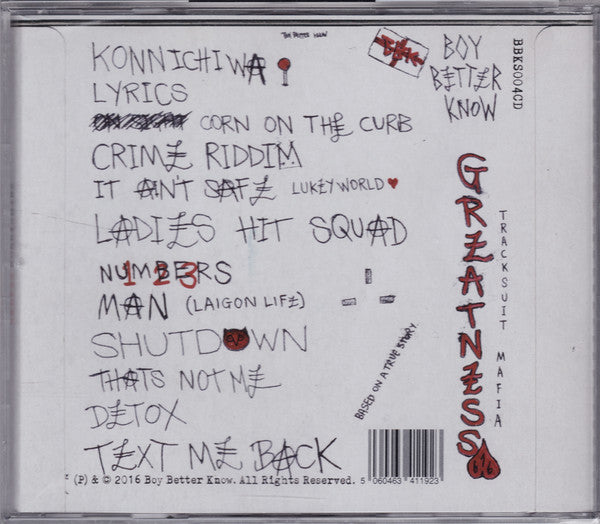 BOY BETTER KNOW
KONNICHIWA
LYRICS
CORN ON THE CURB
CRIME RIDDIM
IT AN'T SAFE LUKEYWORLD ♥
LADIES HIT SQUAD
NUMBERS
123
MAN (LAIGON LIFE)
SHUTDOWN
THATS NOT ME
DETOX
TEXT ME BACK
BOY
BETTER
KNOW
BBKS004CD
GREATNESS
TRACKSUIT MAFIA
616
BASED ON A TRUE STORY.
(P) & © 2016 Boy Better Know. All Rights Reserved.
5 060463 411923